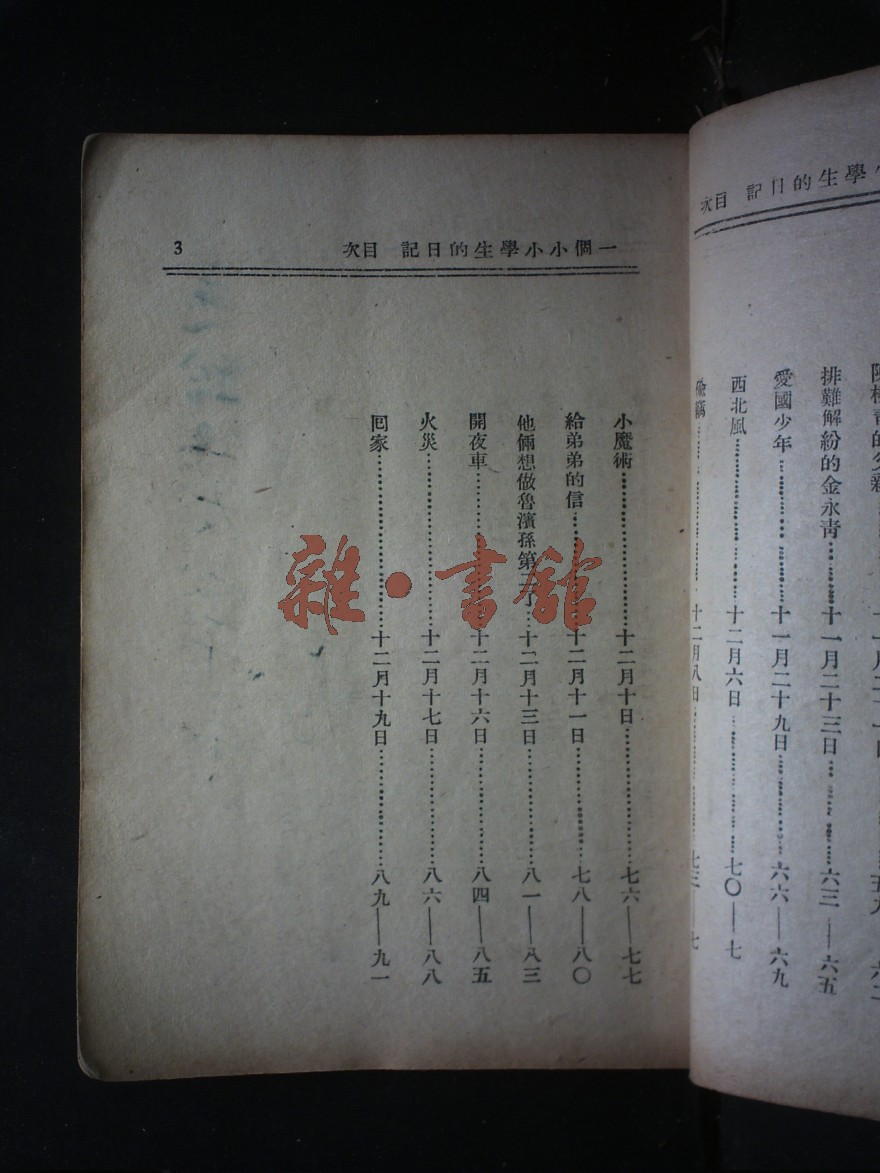 次目 記日的生學小小個一
3
小魔術 十二月十日 七六——七七
給弟弟的信 十二月十一日 七八——八〇
他倆想做魯濱孫第二了 十二月十三日 八一——八三
開夜車 十二月十六日 八四——八五
火災 十二月十七日 八六——八八
囘家 十二月十九日 八九——九一
雜·書館
次目 記日的生學
排難解紛的金永青 十一月二十三日 六三——六五
愛國少年 十一月二十九日 六六——六九
西北風 十二月六日 七〇——七
十二月八日